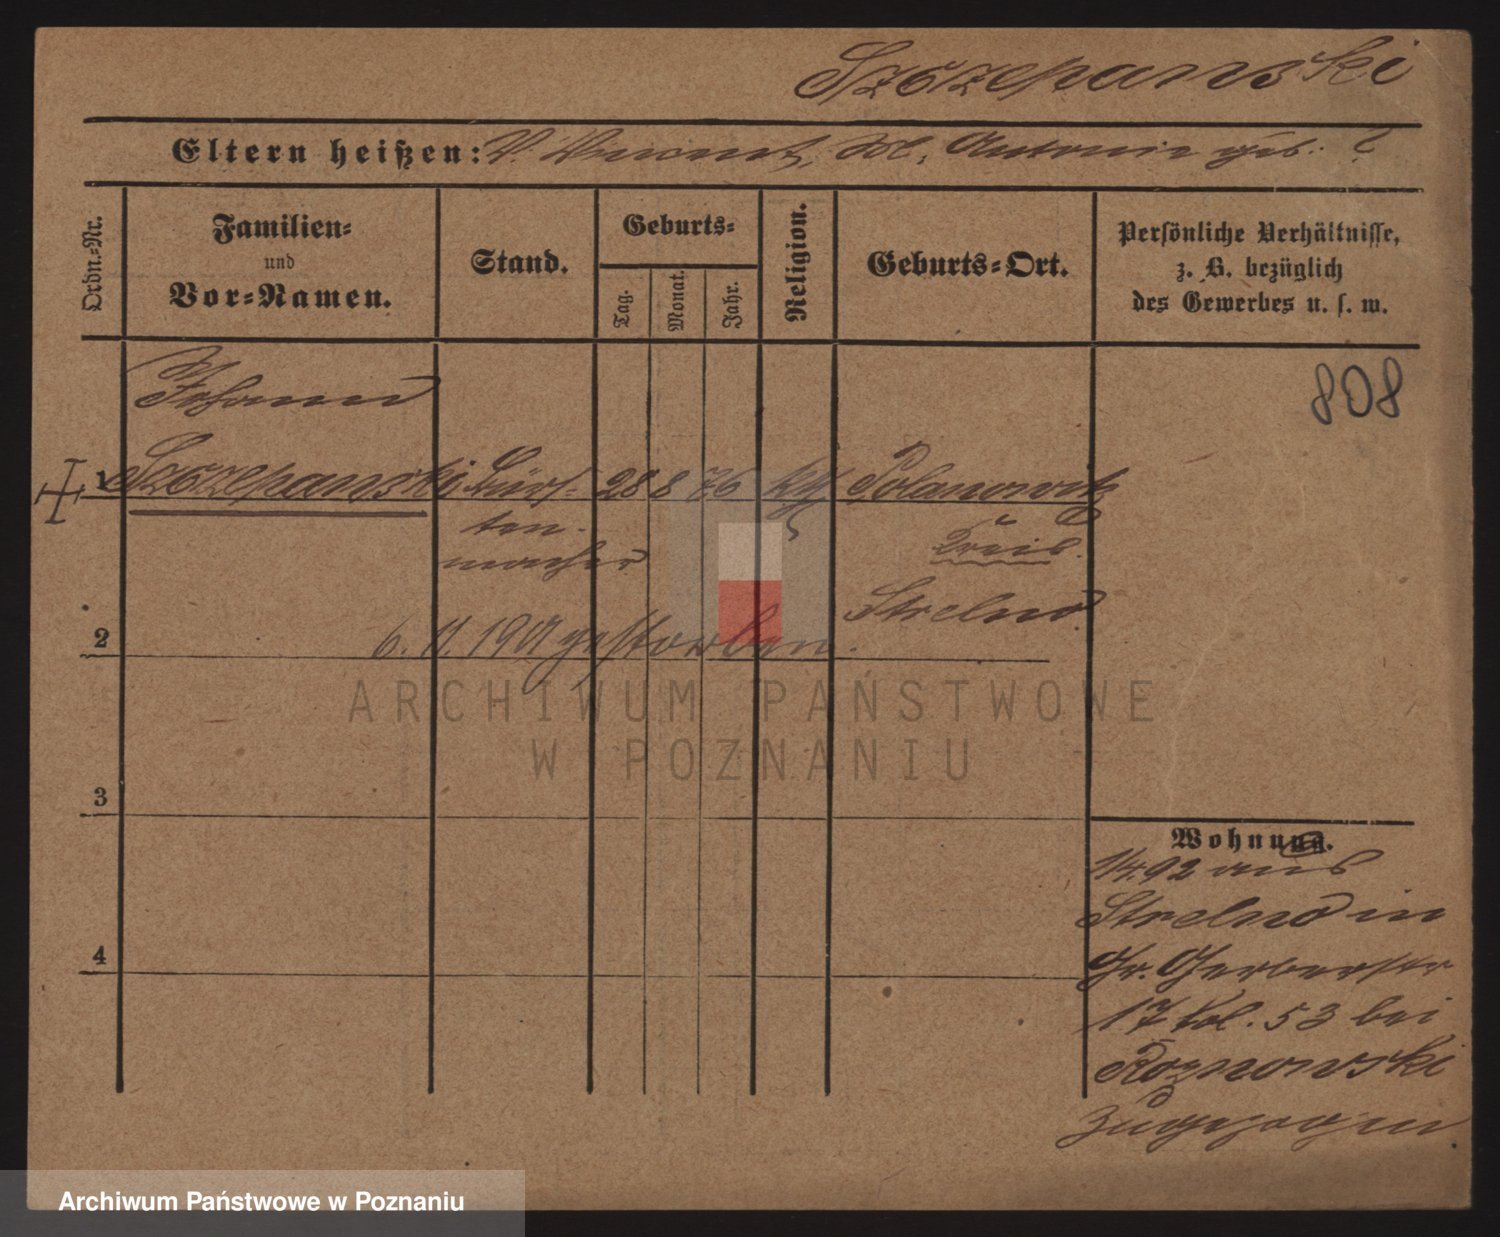 Szczepanski
Eltern heißen: V. Vincent, M. Antonie geb. ?
Ordn.-Nr.
Familien-
und
Vor-Namen.
Stand.
Geburts-
Tag.
Monat.
Jahr.
Religion.
Geburts-Ort.
Persönliche Verhältnisse,
z. B. bezüglich
des Gewerbes u. s. w.
808
Johann
1 Szczepanski Bürs- 28 8 76 kth Polanowitz
ten-
macher
Kreis
Strelno
2
6. 11. 1901 gestorben.
3
4
Wohnung.
1/4.92 aus
Strelno in
Gr. Gerberstr
17 Pol. 53 bei
Roznowski
zugezogen
ARCHIWUM PAŃSTWOWE
W POZNANIU
Archiwum Państwowe w Poznaniu